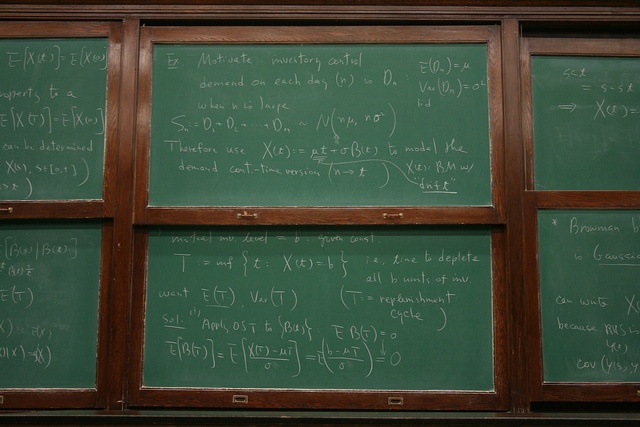 E[X(t)] = E[X(0)]
property to a
E[X(T)] = E[X(0)]
can be determined
X(s), s∈[0,t]
Ex Motivate: inventory control
demand on each day (n) is Dn
when n is large
Sn = D1 + D2 + ... + Dn ~ N(nμ, nσ²)
Therefore use X(t) := μt + σB(t) to model the
demand cont.-time version (n → t)
E(Dn) = μ
Var(Dn) = σ²
iid
X(t): BM w/
"drift"
s≤t
= s - st
⇒ X(t) =
E[B(s)|B(t)]
E(T)
initial inv level = b: given const.
T = inf { t: X(t) = b } i.e., time to deplete
all b units of inv.
want E(T), Var(T) (T = replenishment
cycle)
Sol: (1) Apply OST to {B(t)}. E B(T) = 0
E[B(T)] = E[(X(T) - μT)/σ] = E((b - μT)/σ) = 0
* Brownian b
is Gaussia
can write X(
because RHS is
cov (Y(s), Y